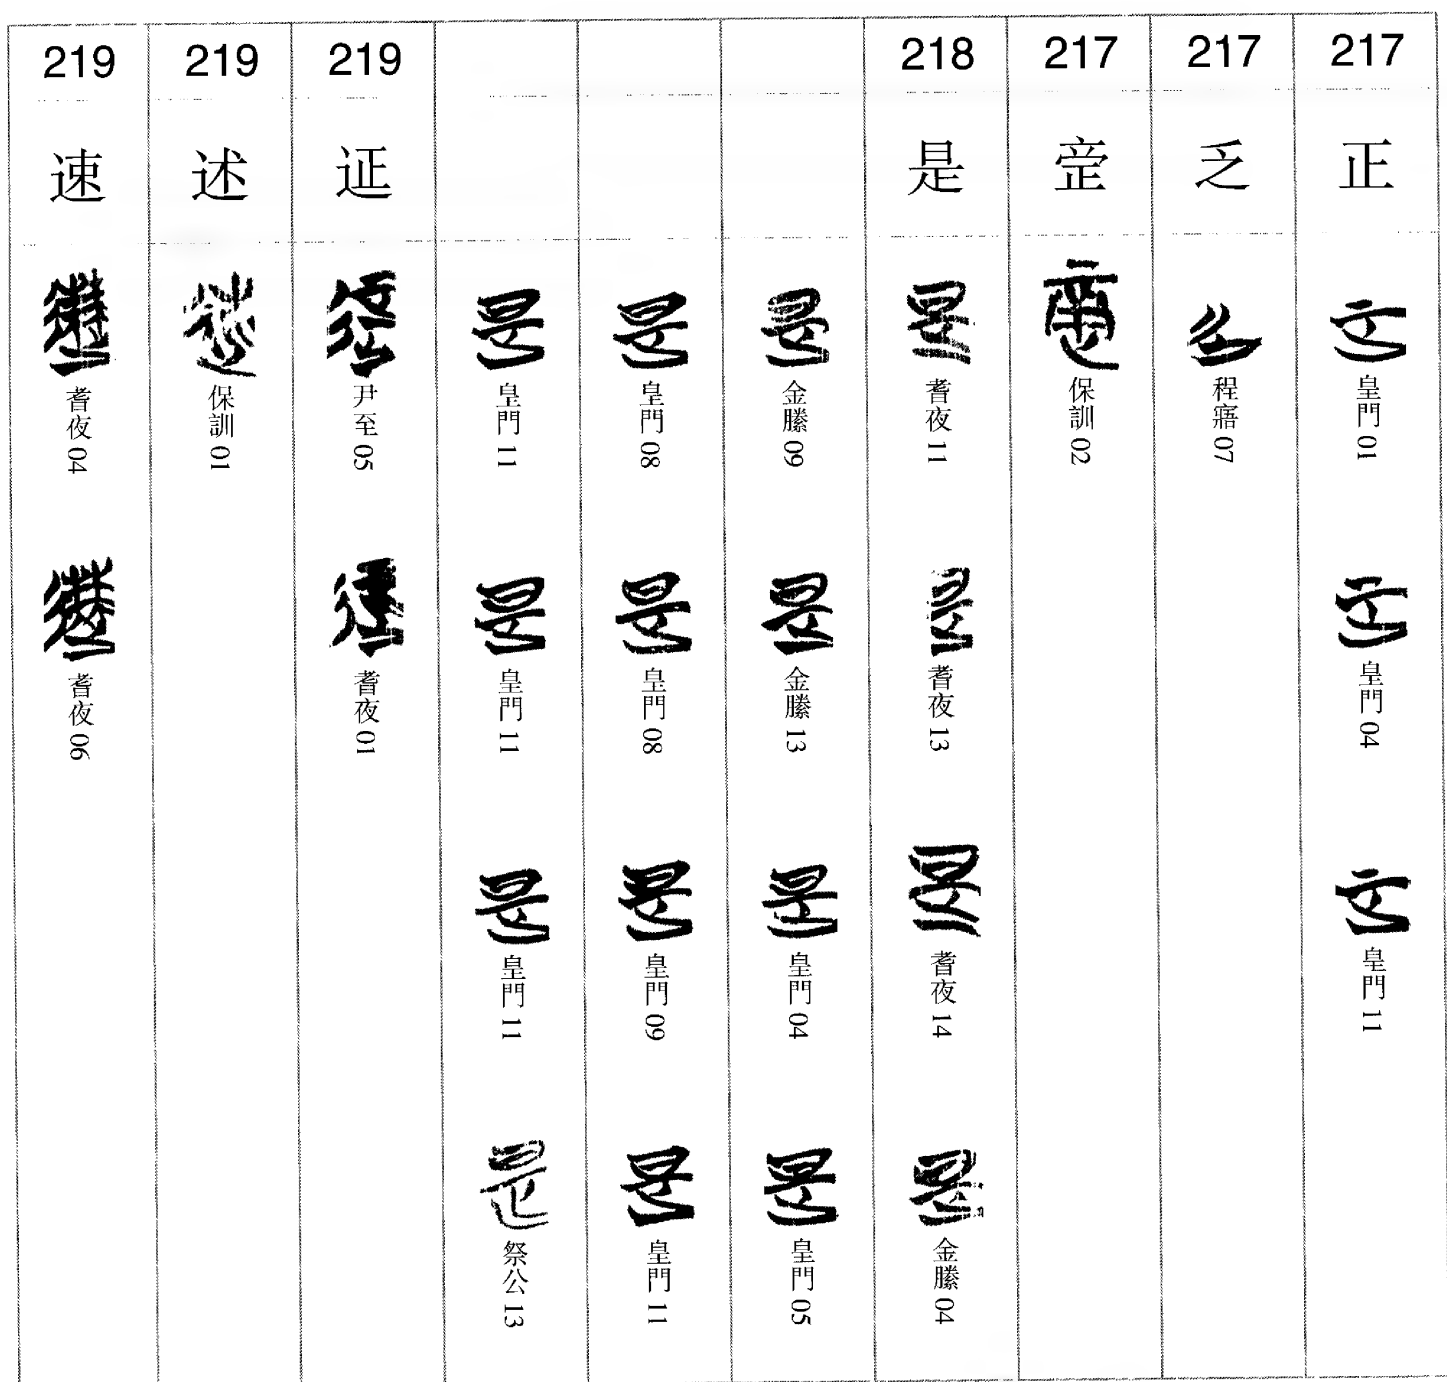 217
正
皇門 01
皇門 04
皇門 11
217
乏
程寤 07
217
保訓 02
218
是
耆夜 11
耆夜 13
耆夜 14
金縢 04
金縢 09
金縢 13
皇門 04
皇門 05
皇門 08
皇門 08
皇門 09
皇門 11
皇門 11
皇門 11
皇門 11
祭公 13
219
证
尹至 05
耆夜 01
219
述
保訓 01
219
速
耆夜 04
耆夜 06